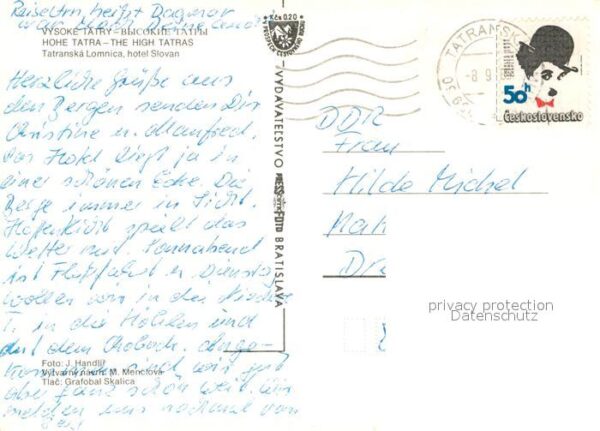 Reiseltn. heißt Dagmar
war
VYSOKÉ TATRY – ВЫСОКИЕ ТАТРЫ
HOHE TATRA – THE HIGH TATRAS
Tatranská Lomnica, hotel Slovan
Herzliche Grüße aus
den Bergen senden Dir
Christine u. Manfred.
Das Hotel liegt ja in
einer schönen Ecke. Die
Berge immer in Sicht.
Hoffentlich spielt das
Wetter mit. Sonnabend
ist Floßfahrt u. Dienstag
wollen wir in die Niedere
T. in die Höhlen und
auf dem Choboch. Ange-
kommen sind wir gut
aber ganz schön weit. Wir
melden uns nochmal von
Foto: J. Handlíř
M. Menctová
Tlač: Grafobal Skalica
Kčs 0,20
VYDAVATEĽSTVO
PRESSFOTO
BRATISLAVA
TATRANSK
-8.9.
50h
Československo
DDR
Frau
Hilde Michel
Mat
Dr
privacy protection
Datenschutz